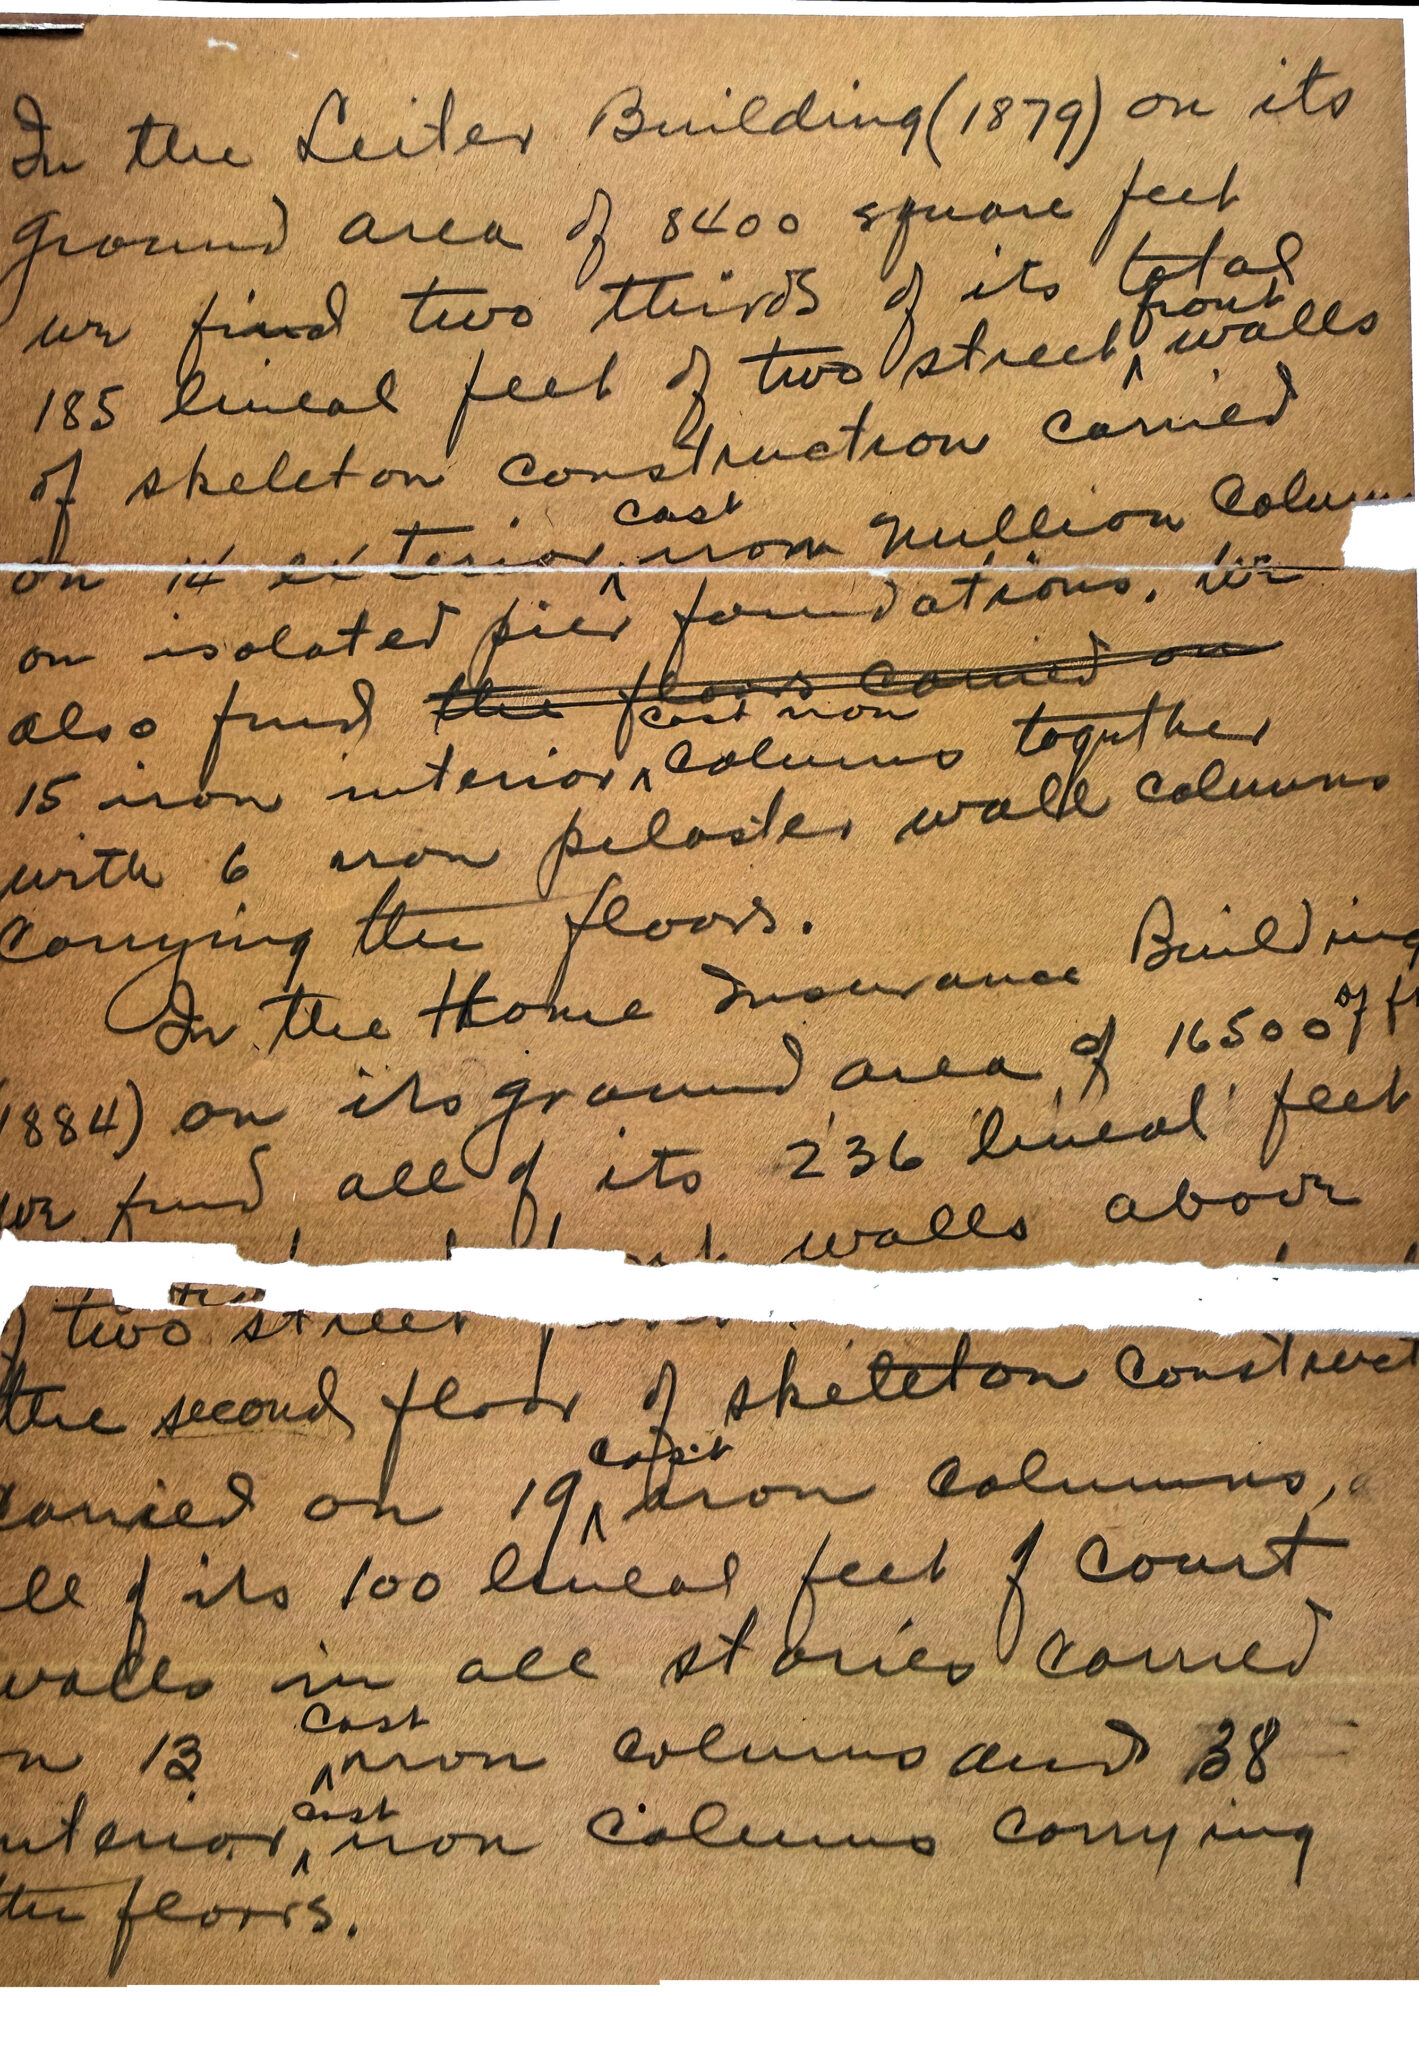 In the Leiter Building (1879) on its
ground area of 8400 square feet
we find two thirds of its total
185 lineal feet of two street front walls
of skeleton construction carried
on 14 exterior cast iron mullion colum
on isolated pier foundations. We
also find the floors carried on
15 iron interior cast iron columns together
with 6 iron pilaster wall columns
carrying the floors.
In the Home Insurance Building
1884) on its ground area of 16500
we find all of its 236 lineal feet
of two street front walls above
the second floor of skeleton construct
carried on 19 cast iron columns,
ll of its 100 lineal feet of court
walls in all stories carried
n 13 cast iron columns and 38
nterior cast iron columns carrying
the floors.